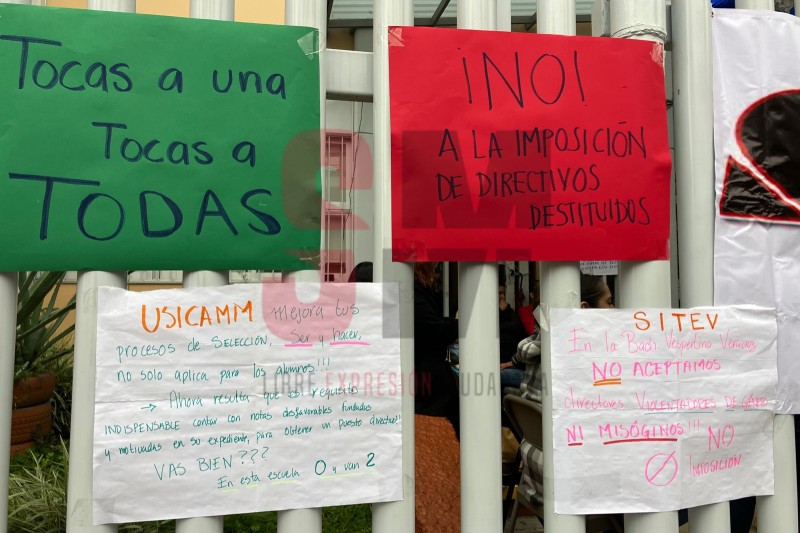 Tocas a una
Tocas a
TODAS
¡NO!
A LA IMPOSICIÓN
DE DIRECTIVOS
DESTITUIDOS
USICAMM mejora tus
procesos de SELECCIÓN, Ser y hacer,
no solo aplica para los alumnos!!!
→ Ahora resulta que es requisito
INDISPENSABLE contar con notas desfavorables fundadas
y motivadas en su expediente, para obtener un puesto directivo!!
VAS BIEN???
En esta escuela 0 y van 2
SITEV
En la Bach Vespertino Veracruz
NO ACEPTAMOS
directores VIOLENTADORES DE GÉNERO
NI MISÓGINOS!!!
NO
IMPOSICIÓN
LIBRE EXPRESIÓN